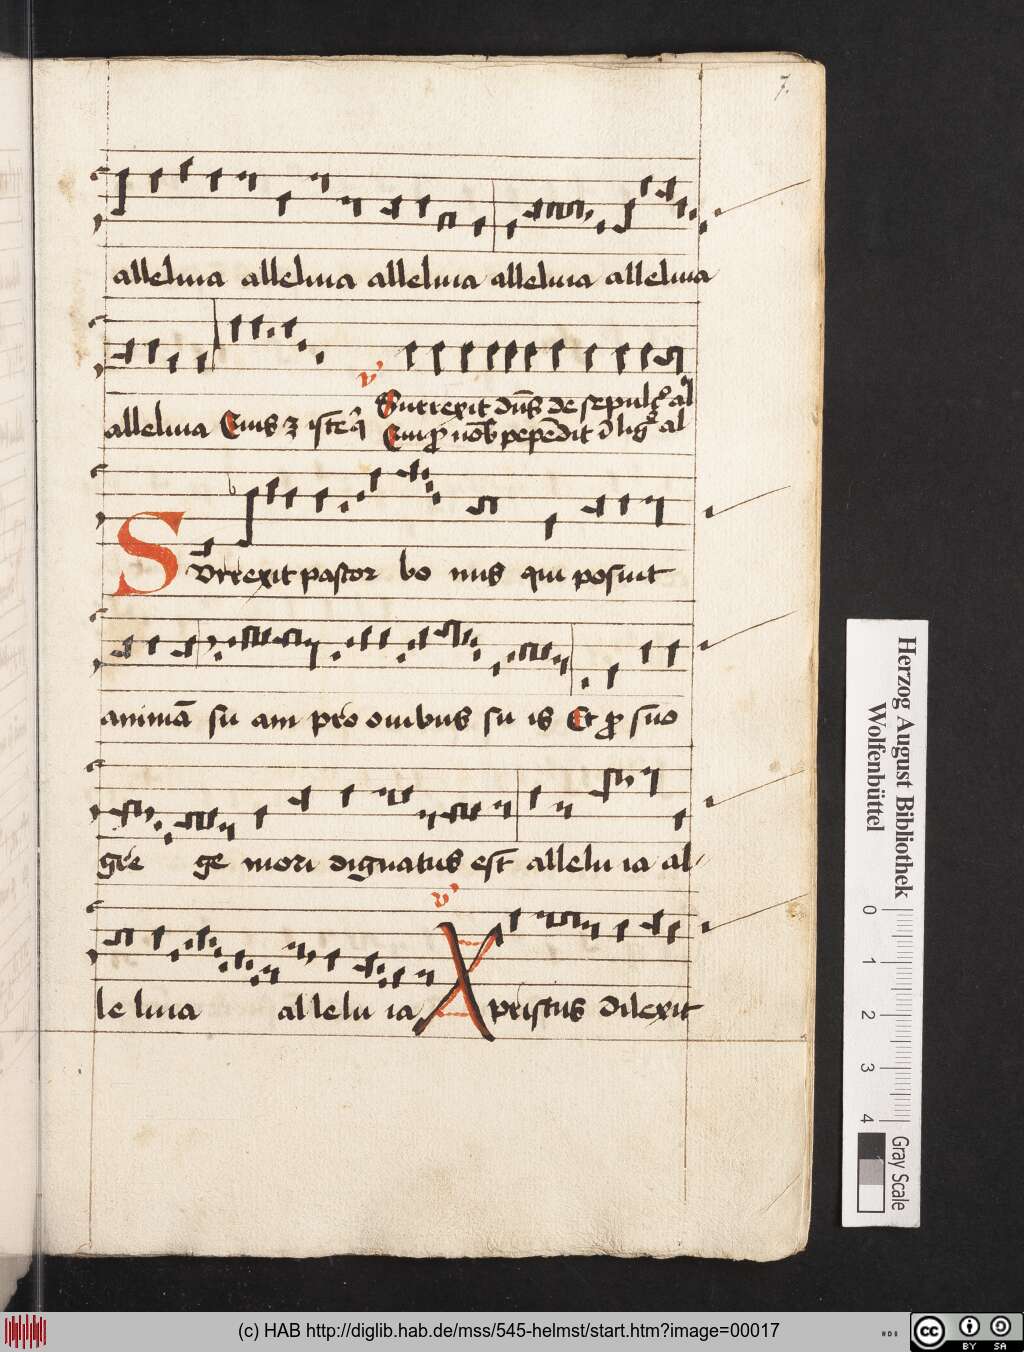 7.
alleluia alleluia alleluia alleluia alleluia
v̾
Surrexit dn̄s de sepulcͦ al͛
alleluia Eius ꝫ iste q̄
Qui ꝓ nob̄ pepēdit ī lig͛ al
Surrexit pastor bo nus qui posuit
animā su am pro ouibus su is Et ꝓ suo
gre ge mori dignatus est allelu ia al
v̾
le luia allelu ia Xpristus dilexit
Herzog August Bibliothek
Wolfenbüttel
0 1 2 3 4
Gray Scale
(c) HAB http://diglib.hab.de/mss/545-helmst/start.htm?image=00017
cc BY SA